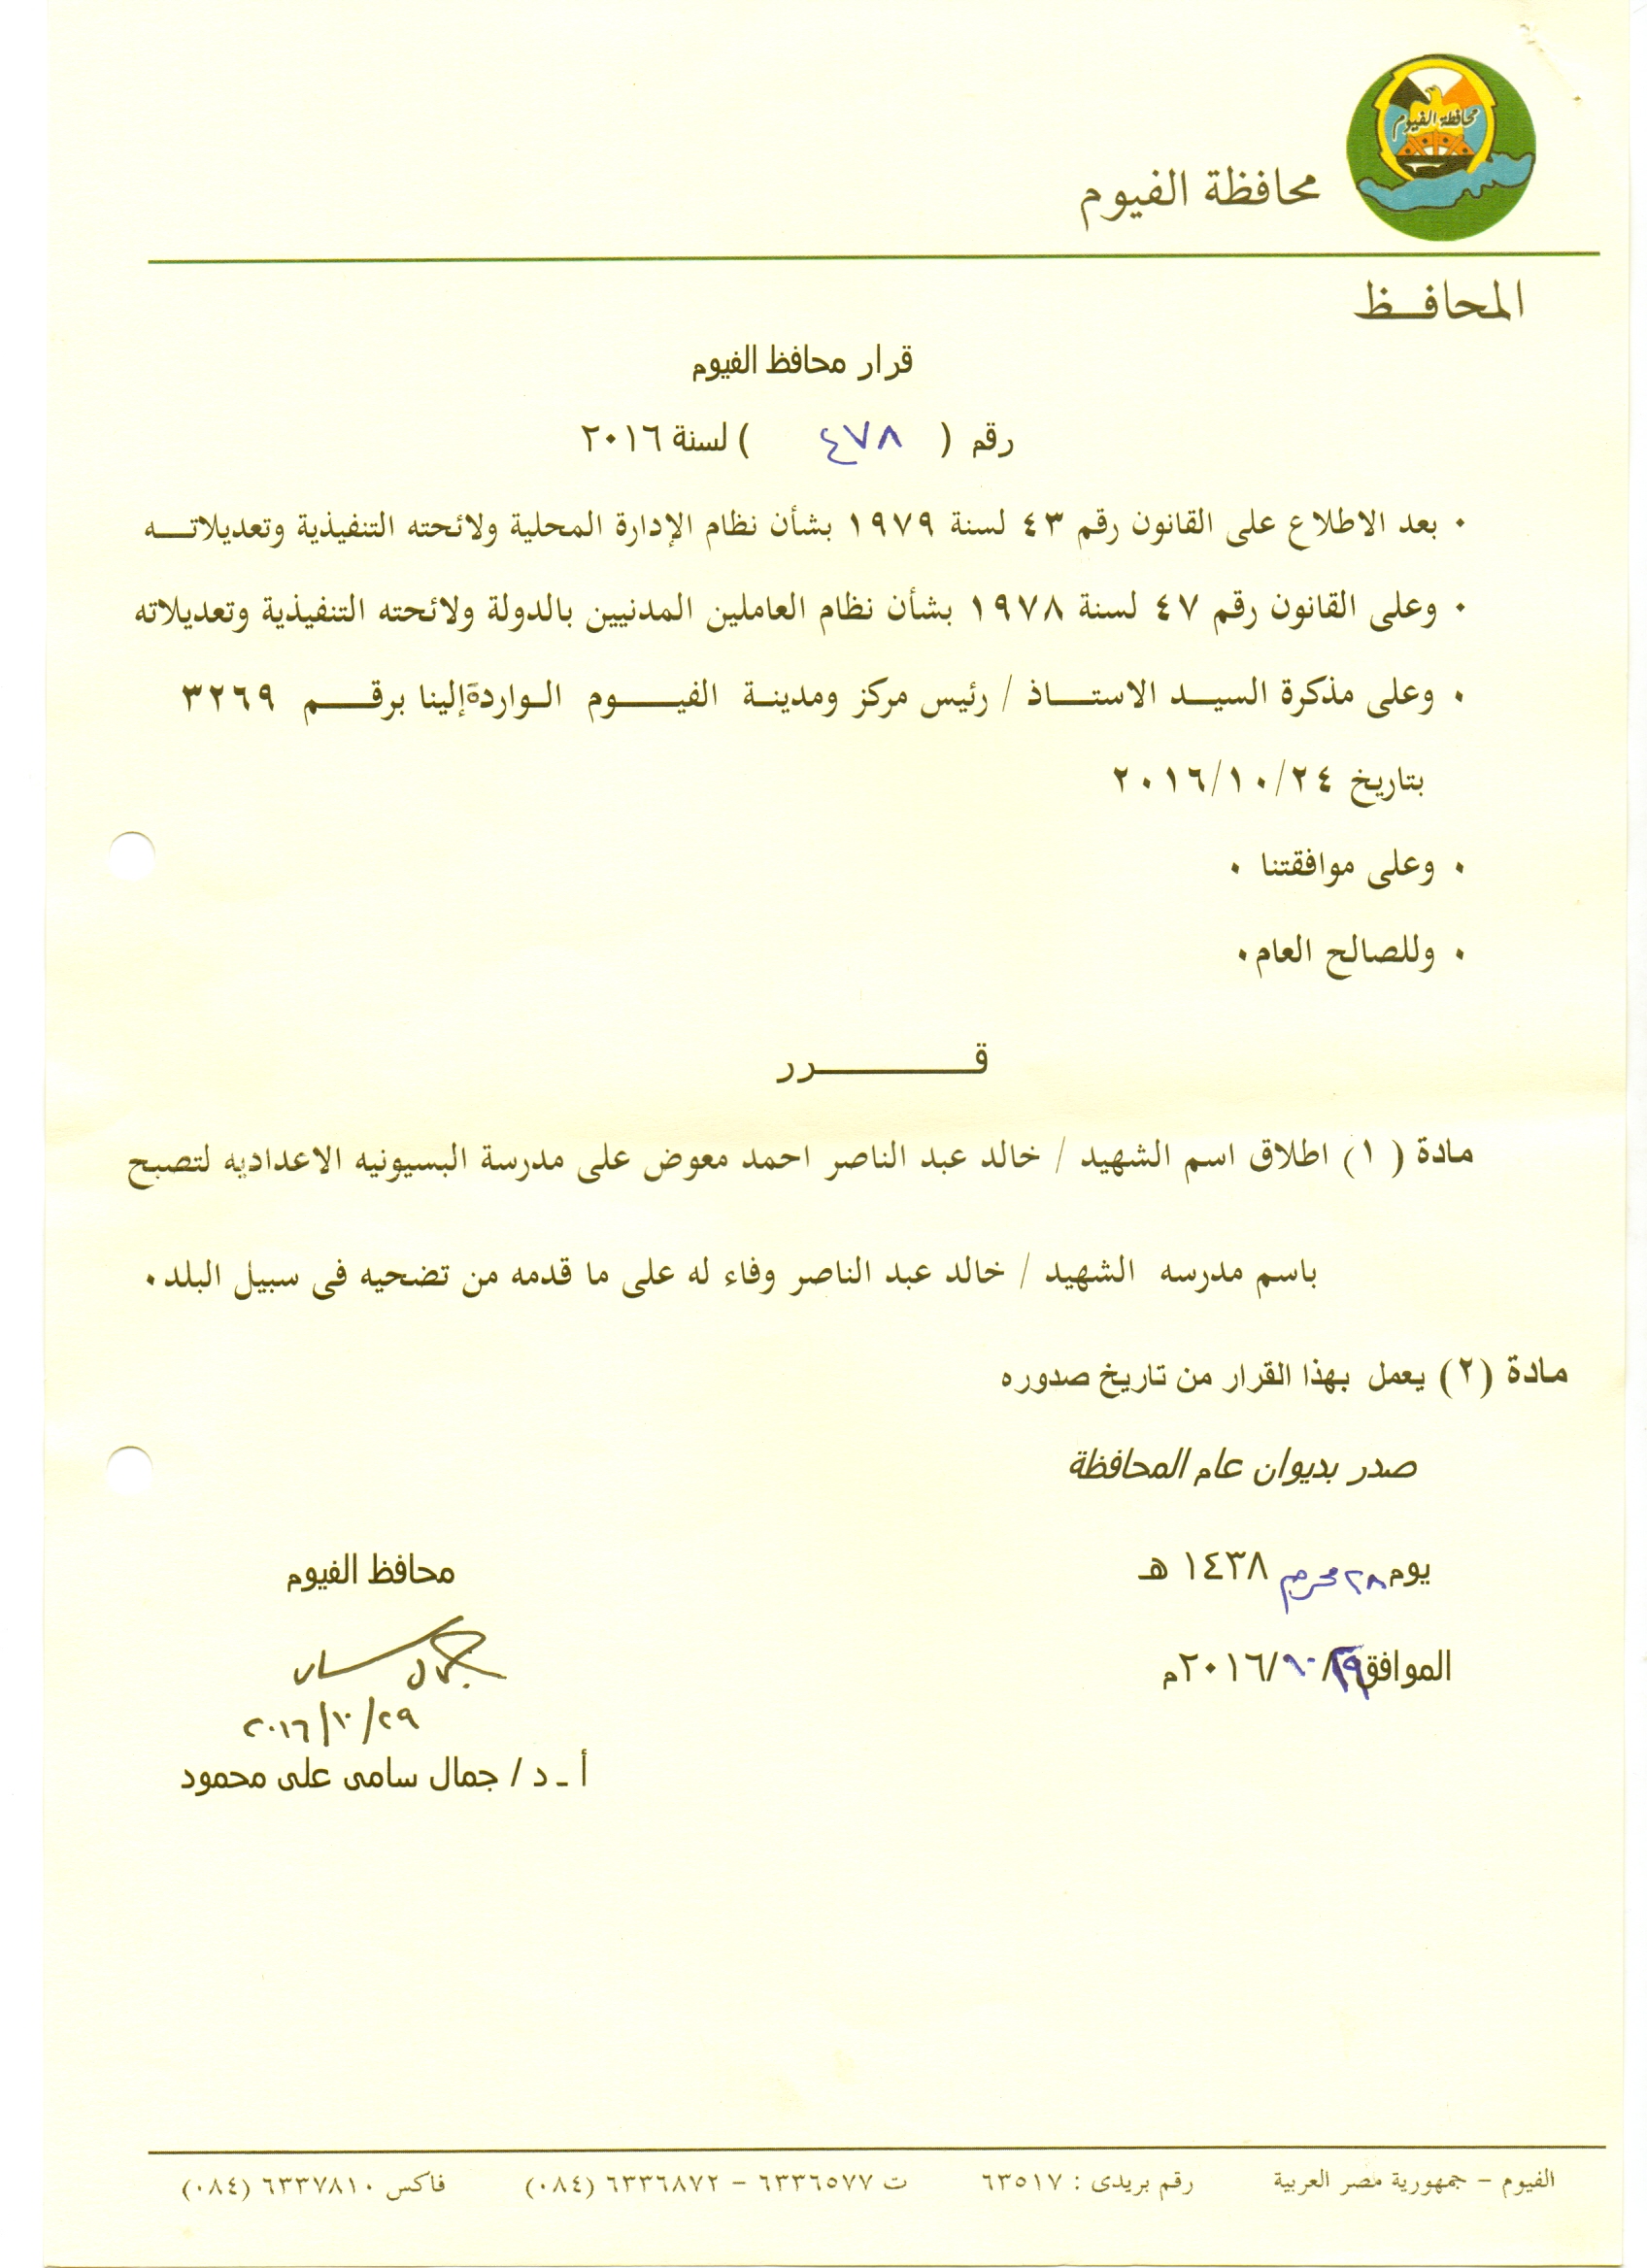 محافظة الفيوم
محافظة الفيوم
المحافـــظ
قرار محافظ الفيوم
رقم ( ٤٧٨ ) لسنة ٢٠١٦
٠ بعد الاطلاع على القانون رقم ٤٣ لسنة ١٩٧٩ بشأن نظام الإدارة المحلية ولائحته التنفيذية وتعديلاتـــه
٠ وعلى القانون رقم ٤٧ لسنة ١٩٧٨ بشأن نظام العاملين المدنيين بالدولة ولائحته التنفيذية وتعديلاته
٠ وعلى مذكرة السيـــد الاستـــاذ / رئيس مركز ومدينــة الفيـــــوم الـواردة إلينا برقــــم ٣٢٦٩
بتاريخ ٢٠١٦/١٠/٢٤
٠ وعلى موافقتنا ٠
٠ وللصالح العام ٠
قــــــــــــرر
مادة ( ١ ) اطلاق اسم الشهيد / خالد عبد الناصر احمد معوض على مدرسة البسيونيه الاعداديه لتصبح
باسم مدرسه الشهيد / خالد عبد الناصر وفاء له على ما قدمه من تضحيه فى سبيل البلد ٠
مادة (٢) يعمل بهذا القرار من تاريخ صدوره
صدر بديوان عام المحافظة
يوم ٢٨ محرم ١٤٣٨ هـ
الموافق ٢٩/ ١٠ /٢٠١٦م
محافظ الفيوم
٢٠١٦/١٠/٢٩
أ ـ د / جمال سامى على محمود
الفيوم – جمهورية مصر العربية رقم بريدى : ٦٣٥١٧ ت ٦٣٣٦٥٧٧ – ٦٣٣٦٨٧٢ (٠٨٤) فاكس ٦٣٣٧٨١٠ (٠٨٤)